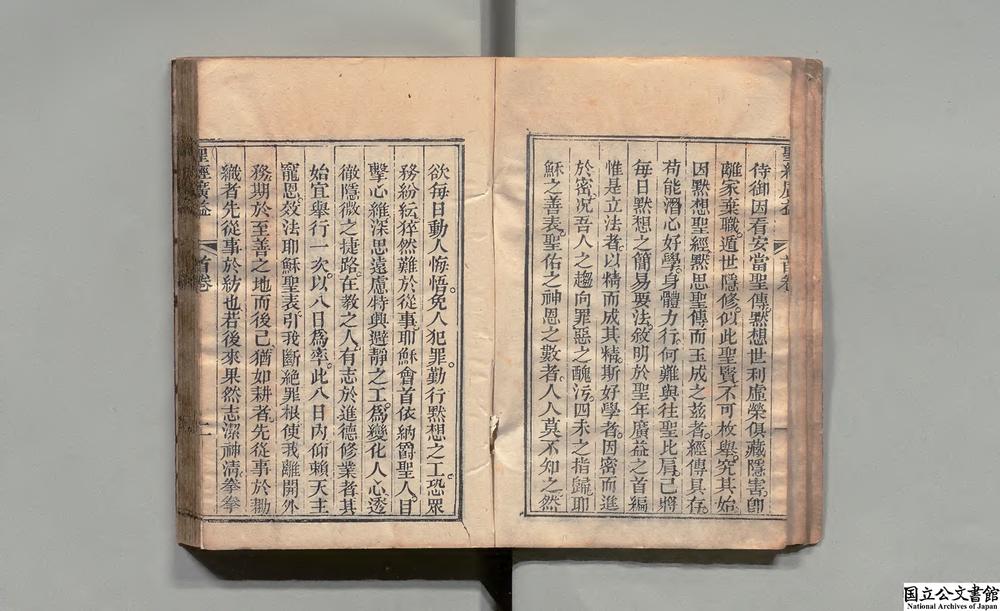 侍御因看安當聖傳。默想世利虛榮俱藏隱害。卽
離家棄職。遁世隱修。似此聖賢不可枚舉。究其始。
因默想聖經。默思聖傳而玉成之。茲者。經傳具存。
苟能潛心好學。身體力行。何難與往聖比肩。已將
每日默想之簡易要法。敘明於聖年廣益之首編
惟是立法者。以精而成其精。斯好學者。因密而進
於密。况吾人之趨向罪惡之醜污。四末之指歸。耶
穌之善表。聖佑之神恩之數者。人人莫不知之。然
聖經廣益
首卷
欲每日動人悔悟。免人犯罪。勤行默想之工。恐眾
務紛紜。猝然難於從事。耶穌會首依納爵聖人。目
擊心維。深思遠慮。特興避靜之工。爲變化人心。透
徹隱微之捷路。在教之人。有志於進德修業者。其
始宜舉行一次。以八日爲率。此八日內。仰賴天主
寵恩。效法耶穌聖表。引我斷絕罪根。使我離開外
務。期於至善之地而後已。猶如耕者。先從事於耡
織者先從事於紡也。若後來果然志潔神淸。拳拳
聖經廣益
首卷
二
国立公文書館
National Archives of Japan